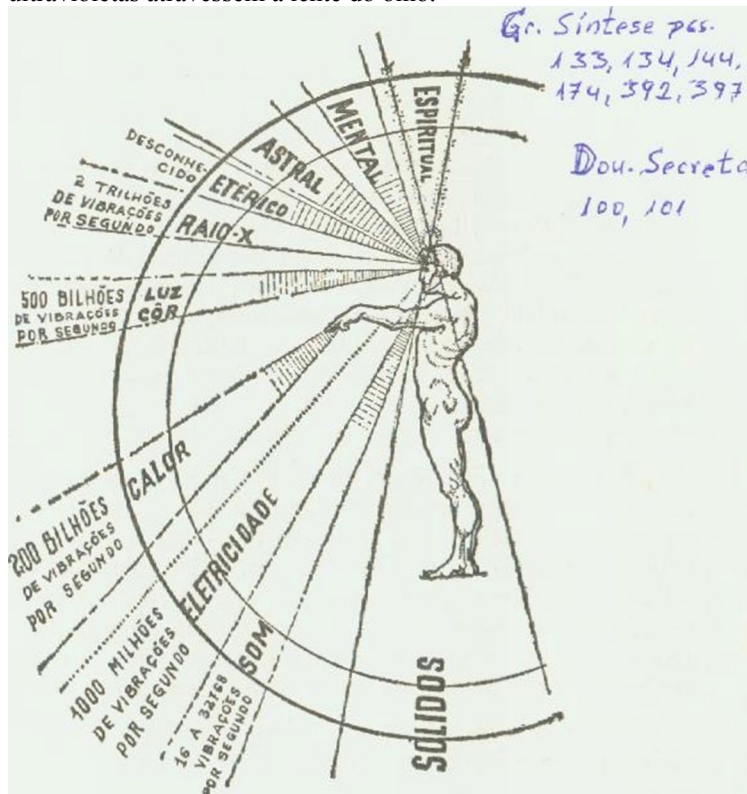 ultravioletas atravessem a lente do olho.
Gr. Síntese pgs.
133, 134, 144,
174, 392, 397
Dou. Secreta
100, 101
ESPIRITUAL
MENTAL
ASTRAL
DESCONHE-
CIDO
ETÉRICO
2 TRILHÕES
DE VIBRAÇÕES
POR SEGUNDO
RAIO-X
500 BILHÕES
DE VIBRAÇÕES
POR SEGUNDO
LUZ
CÔR
CALOR
200 BILHÕES
DE VIBRAÇÕES
POR SEGUNDO
ELETRICIDADE
1000 MILHÕES
DE VIBRAÇÕES
POR SEGUNDO
SOM
16 A 32768
VIBRAÇÕES
POR SEGUNDO
SÓLIDOS